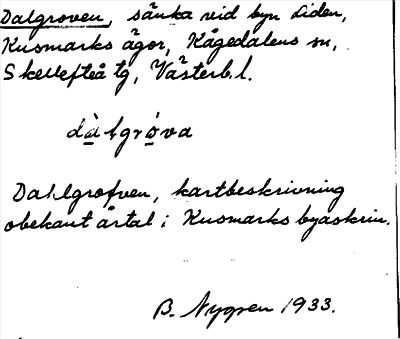 Dalgroven, sänka vid byn Liden,
Kusmarks ägor, Kågedalens sn,
Skellefteå tg, Västerb. l.
dàlgrǫ́va
Dahlgrofven, kartbeskrivning
obekant årtal i Kusmarks byaskrin.
B. Nygren 1933.